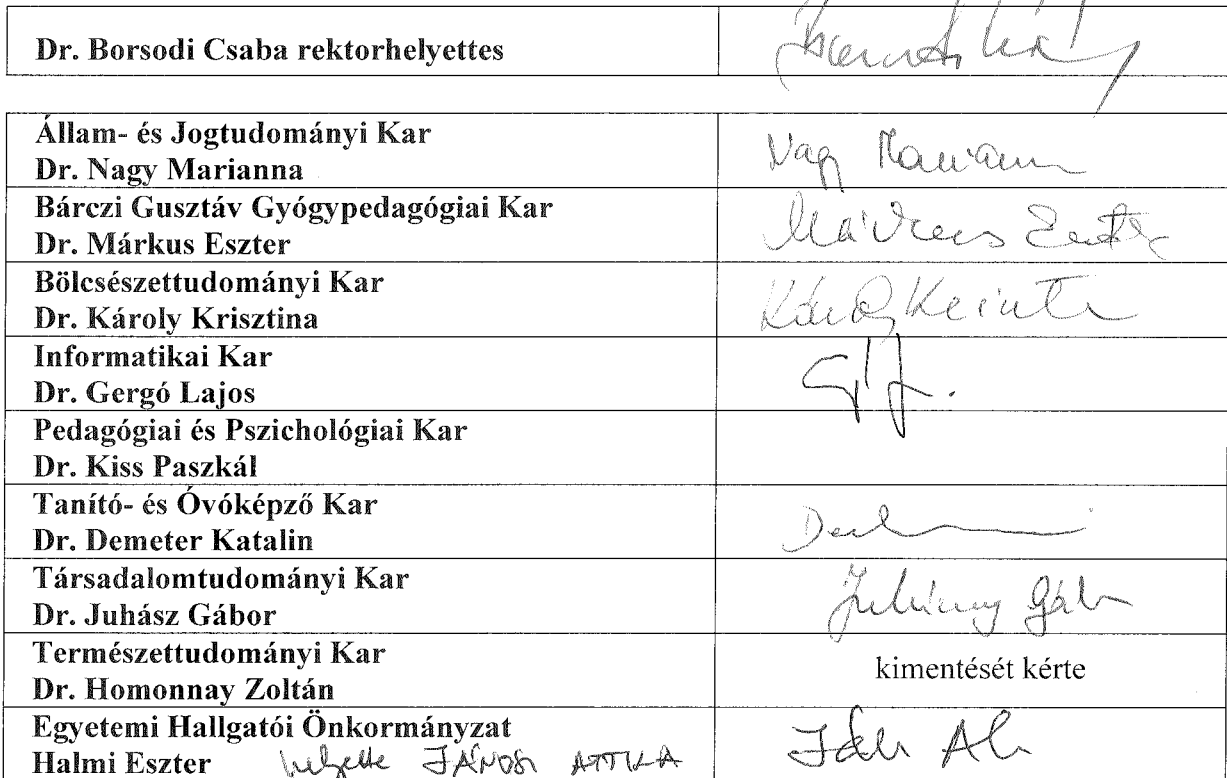 Dr. Borsodi Csaba rektorhelyettes
Állam- és Jogtudományi Kar
Dr. Nagy Marianna
Nagy Mariann
Bárczi Gusztáv Gyógypedagógiai Kar
Dr. Márkus Eszter
Márkus Eszter
Bölcsészettudományi Kar
Dr. Károly Krisztina
Informatikai Kar
Dr. Gergó Lajos
Pedagógiai és Pszichológiai Kar
Dr. Kiss Paszkál
Tanító- és Óvóképző Kar
Dr. Demeter Katalin
Társadalomtudományi Kar
Dr. Juhász Gábor
Juhász Gábor
Természettudományi Kar
Dr. Homonnay Zoltán
kimentését kérte
Egyetemi Hallgatói Önkormányzat
Halmi Eszter helyette JÁNOSI ATTILA